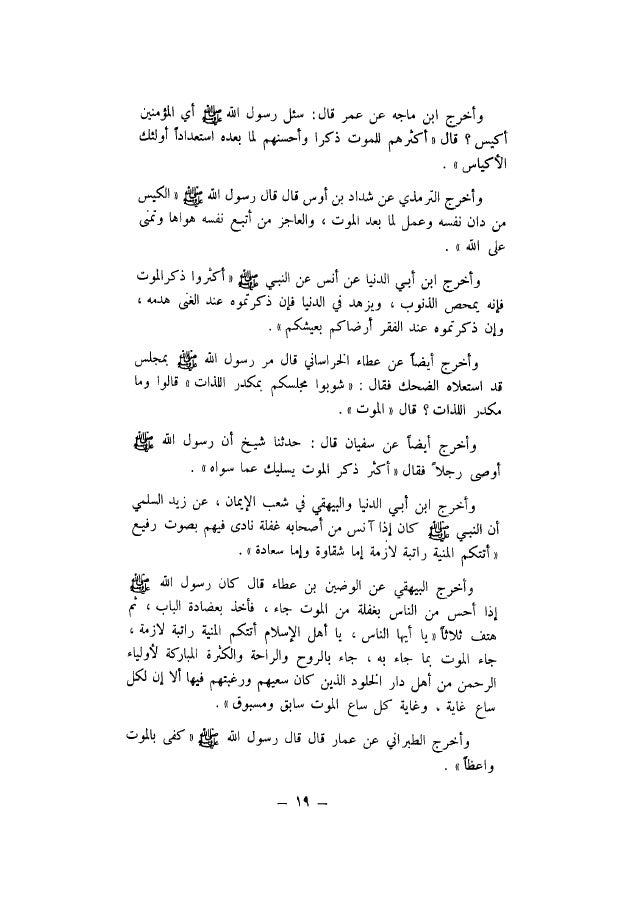 وأخرج ابن ماجه عن عمر قال : سئل رسول الله ﷺ أي المؤمنين
أكيس ؟ قال « أكثرهم للموت ذكرا وأحسنهم لما بعده استعداداً أولئك
الأكياس » .
وأخرج الترمذي عن شداد بن أوس قال قال رسول الله ﷺ « الكيس
من دان نفسه وعمل لما بعد الموت ، والعاجز من أتبع نفسه هواها وتمنى
على الله » .
وأخرج ابن أبي الدنيا عن أنس عن النبي ﷺ « أكثروا ذكر الموت
فإنه يمحص الذنوب ، ويزهد في الدنيا فإن ذكرتموه عند الغنى هدمه ،
وإن ذكرتموه عند الفقر أرضاكم بعيشكم » .
وأخرج أيضاً عن عطاء الخراساني قال مر رسول الله ﷺ بمجلس
قد استعلاه الضحك فقال : « شوبوا مجلسكم بمكدر اللذات » قالوا وما
مكدر اللذات ؟ قال « الموت » .
وأخرج أيضاً عن سفيان قال : حدثنا شيخ أن رسول الله ﷺ
أوصى رجلاً فقال « أكثر ذكر الموت يسليك عما سواه » .
وأخرج ابن أبي الدنيا والبيهقي في شعب الإيمان ، عن زيد السلمي
أن النبي ﷺ كان إذا آنس من أصحابه غفلة نادى فيهم بصوت رفيع
« أتتكم المنية راتبة لازمة إما شقاوة وإما سعادة » .
وأخرج البيهقي عن الوضين بن عطاء قال كان رسول الله ﷺ
إذا أحس من الناس بغفلة من الموت جاء ، فأخذ بعضادة الباب ، ثم
هتف ثلاثاً « يا أيها الناس ، يا أهل الإسلام أتتكم المنية راتبة لازمة ،
جاء الموت بما جاء به ، جاء بالروح والراحة والكثرة المباركة لأولياء
الرحمن من أهل دار الخلود الذين كان سعيهم ورغبتهم فيها ألا إن لكل
ساع غاية ، وغاية كل ساع الموت سابق ومسبوق » .
وأخرج الطبراني عن عمار قال قال رسول الله ﷺ « كفى بالموت
واعظاً » .
— ١٩ —